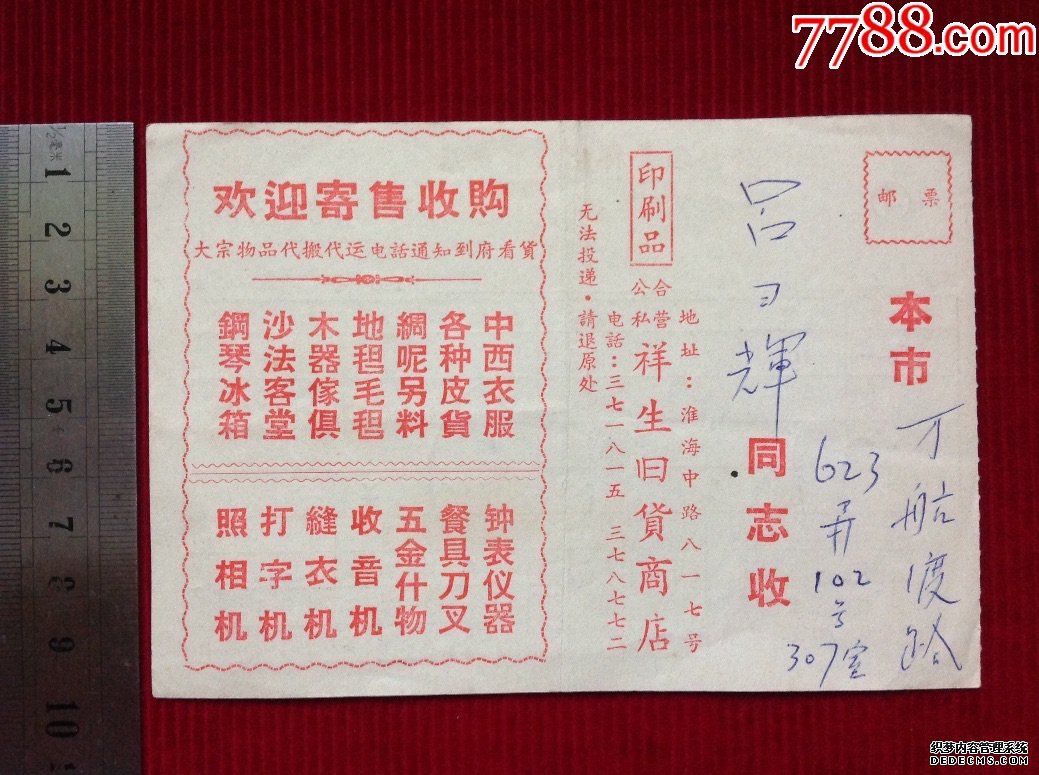 7788.com
邮票
本市
万航渡路
623弄
102号
307室
吕 輝
同志收
地址：淮海中路八一七号
印刷品
公私合营
祥生旧貨商店
电話：三七一八一五 三七八七七二
无法投递·請退原处
欢迎寄售收購
大宗物品代搬代运电話通知到府看貨
中西衣服
各种皮貨
綢呢另料
地毡毛毡
木器傢俱
沙法客堂
鋼琴冰箱
钟表仪器
餐具刀叉
五金什物
收音机
縫衣机
打字机
照相机
½毫米
1 2 3 4 5 6 7 8 9 10
织梦内容管理系统
DEDECMS.COM